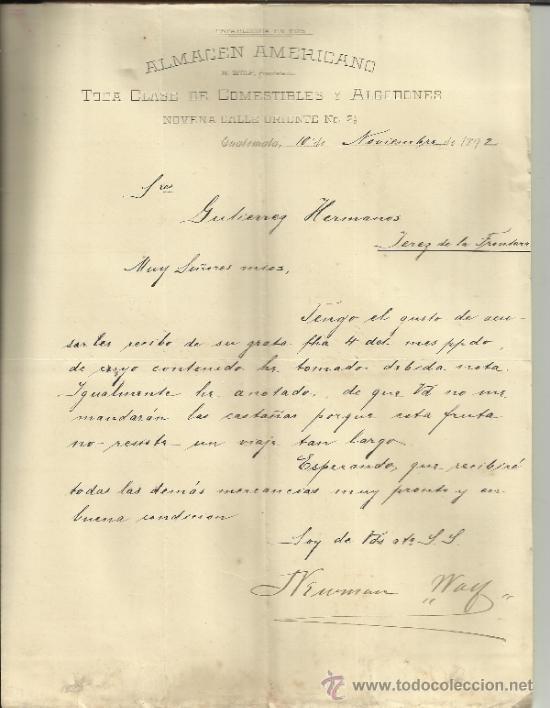 ALMACEN AMERICANO
TODA CLASE DE COMESTIBLES Y ALGODONES
NOVENA CALLE ORIENTE No. 2½
Guatemala, 10 de Noviembre de 1892
Sres
Gutierrez Hermanos
Jerez de la Frontera
Muy Señores mios,
Tengo el gusto de acu-
sarles recibo de su grata fha 4 del mes ppdo,
de cuyo contenido he tomado debida nota.
Igualmente he anotado, de que Vd no me
mandarán las castañas porque esta fruta
no resiste un viaje tan largo.
Esperando, que recibiré
todas las demás mercancias muy pronto y en
buena condicion
Soy de Vds ato S.S.
Newman
todocoleccion
www.todocoleccion.net